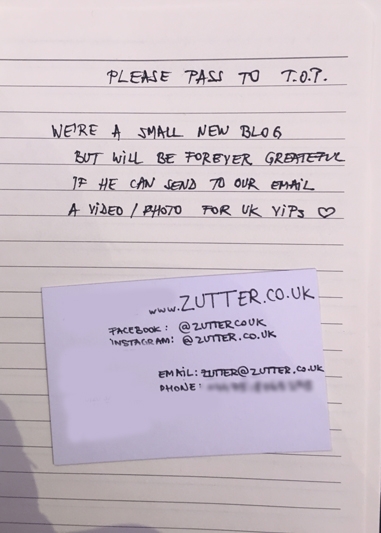 PLEASE PASS TO T.O.P.
WE'RE A SMALL NEW BLOG
BUT WILL BE FOREVER GREATEFUL
IF HE CAN SEND TO OUR EMAIL
A VIDEO / PHOTO FOR UK VIPS ♡
www.ZUTTER.CO.UK
FACEBOOK: @ZUTTERCOUK
INSTAGRAM: @ZUTTER.CO.UK
EMAIL: ZUTTER@ZUTTER.CO.UK
PHONE: